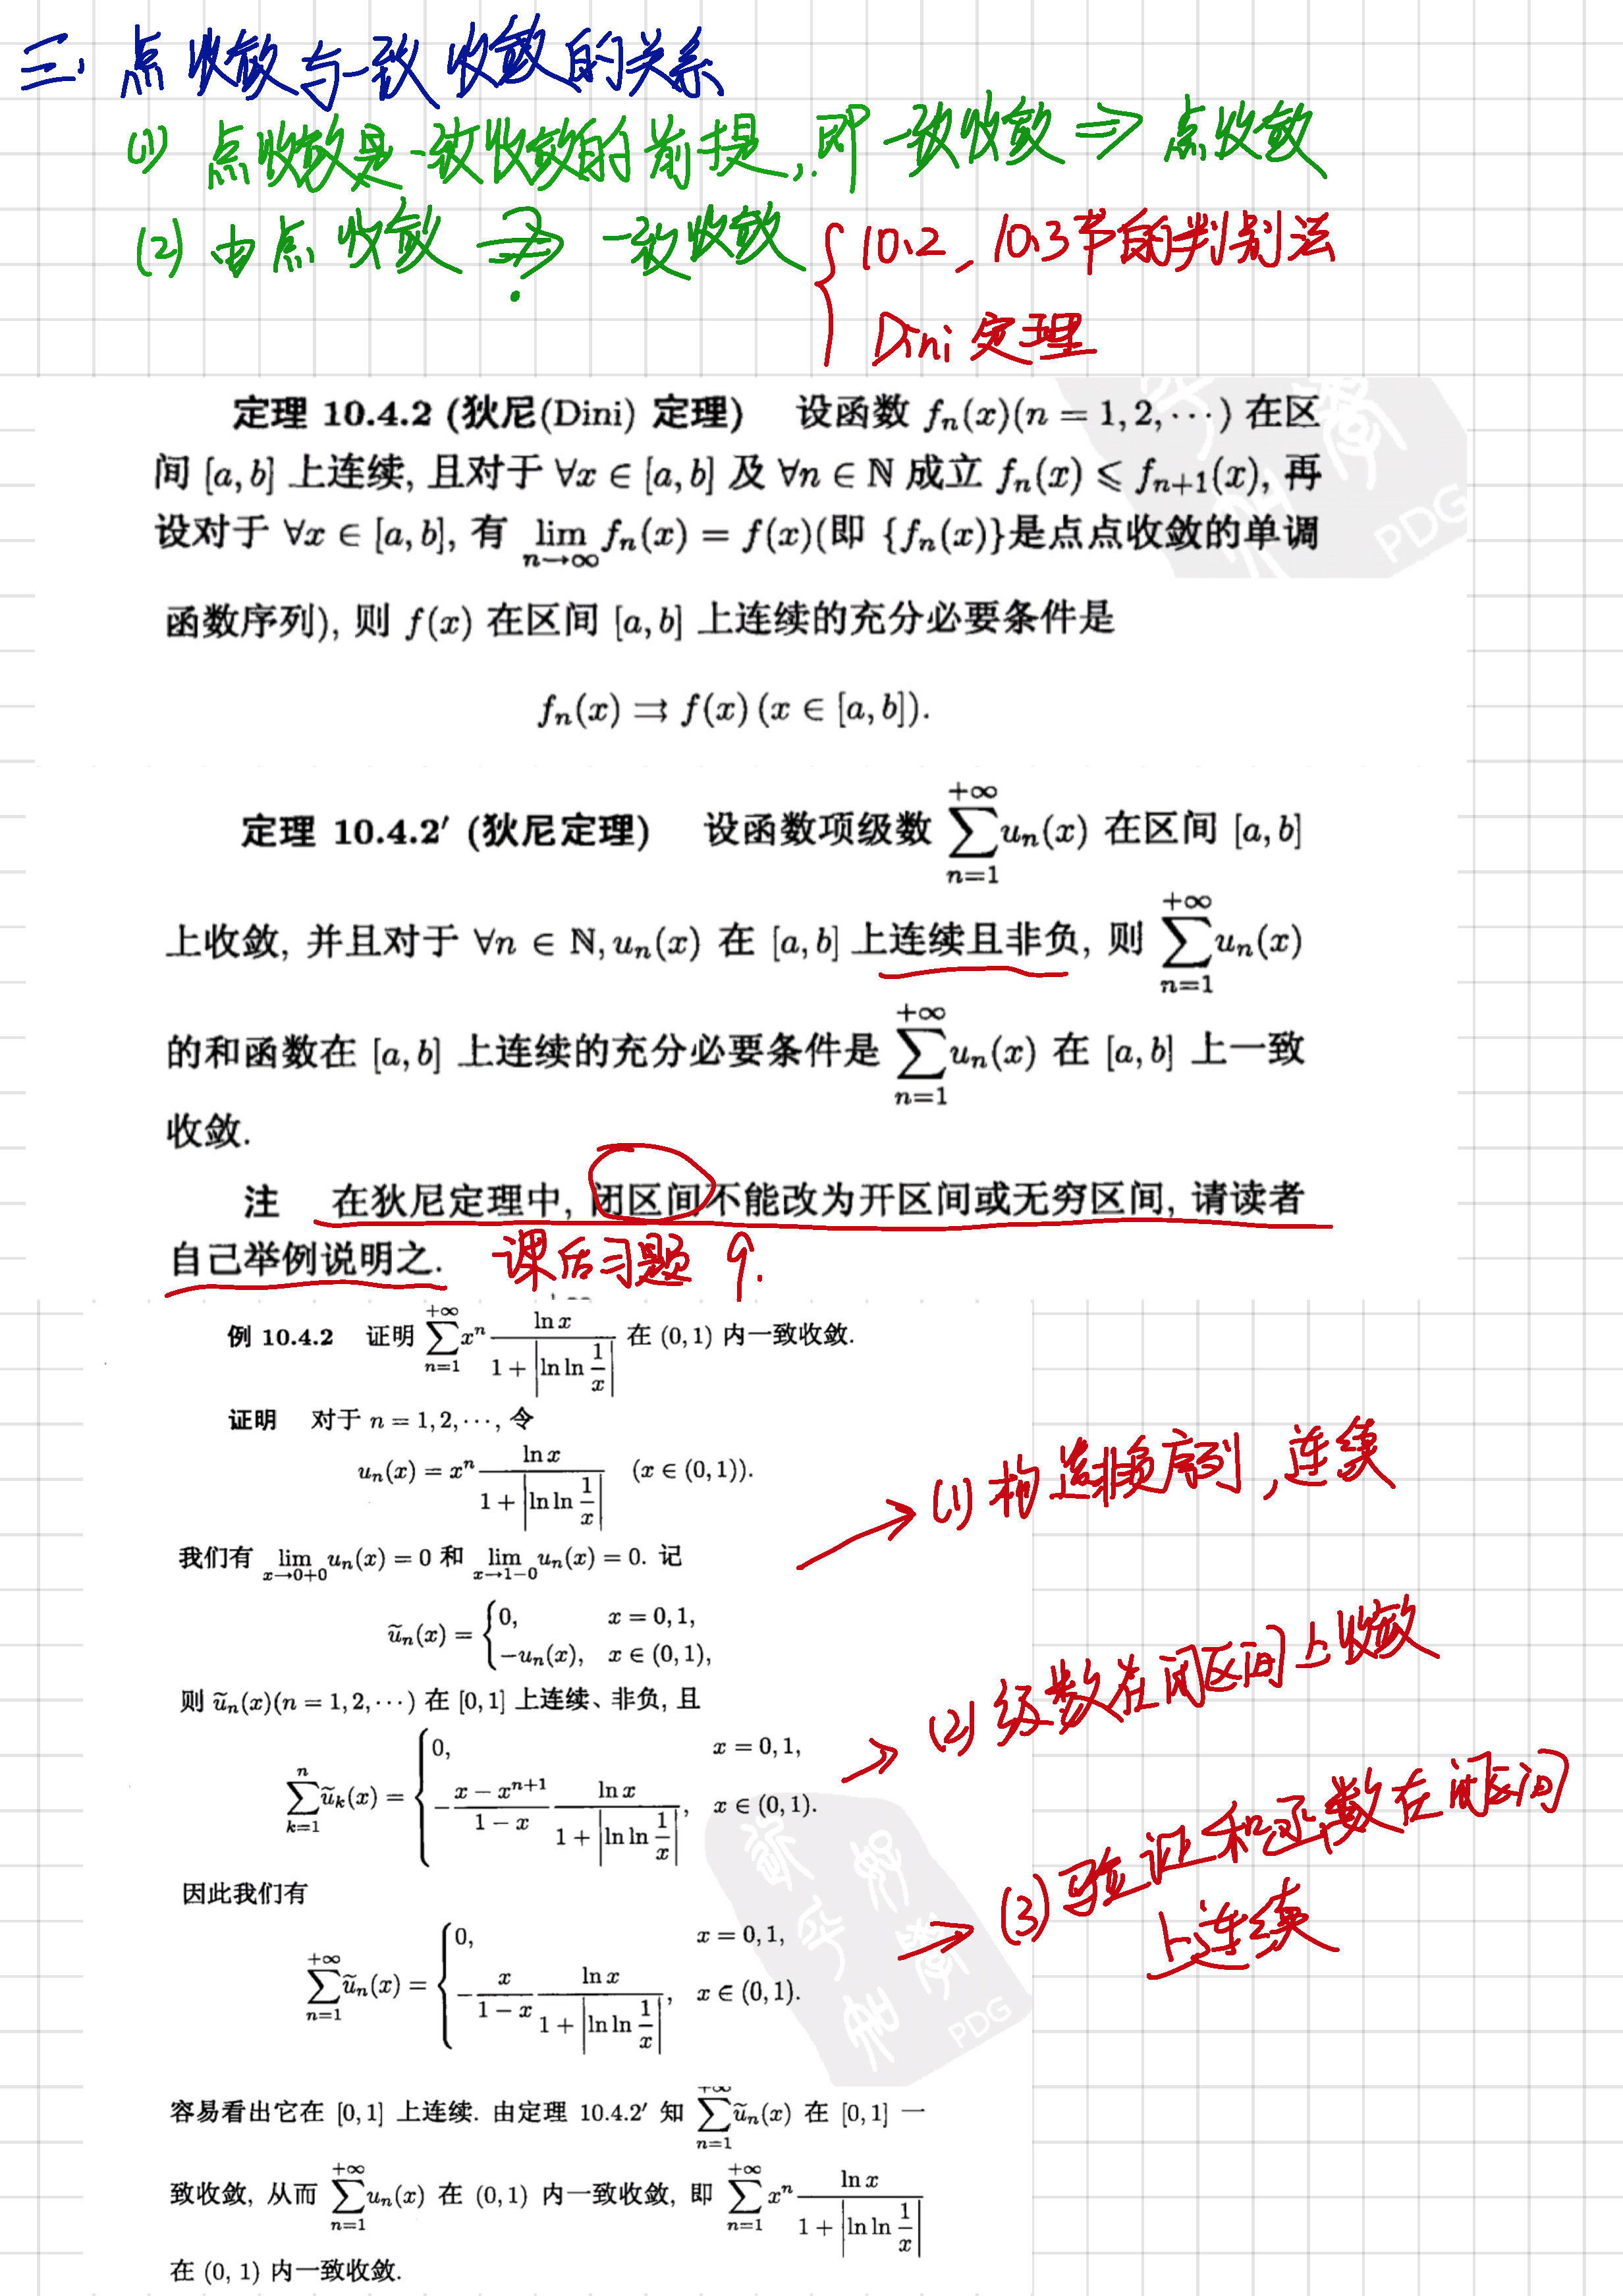 三. 点收敛与一致收敛的关系
(1) 点收敛是一致收敛的前提, 即一致收敛 ⇒ 点收敛
(2) 由点收敛 ⇏ 一致收敛 { 10.2, 10.3节的判别法
?
Dini 定理
定理 10.4.2 (狄尼(Dini) 定理) 设函数 fₙ(x)(n = 1, 2, ⋯) 在区
间 [a, b] 上连续, 且对于 ∀x ∈ [a, b] 及 ∀n ∈ ℕ 成立 fₙ(x) ⩽ fₙ₊₁(x), 再
设对于 ∀x ∈ [a, b], 有 lim_{n→∞} fₙ(x) = f(x)(即 {fₙ(x)}是点点收敛的单调
函数序列), 则 f(x) 在区间 [a, b] 上连续的充分必要条件是
fₙ(x) ⇉ f(x) (x ∈ [a, b]).
定理 10.4.2′ (狄尼定理) 设函数项级数 ∑_{n=1}^{+∞} uₙ(x) 在区间 [a, b]
上收敛, 并且对于 ∀n ∈ ℕ, uₙ(x) 在 [a, b] 上连续且非负, 则 ∑_{n=1}^{+∞} uₙ(x)
的和函数在 [a, b] 上连续的充分必要条件是 ∑_{n=1}^{+∞} uₙ(x) 在 [a, b] 上一致
收敛.
注 在狄尼定理中, 闭区间不能改为开区间或无穷区间, 请读者
自己举例说明之. 课后习题 9.
例 10.4.2 证明 ∑_{n=1}^{+∞} xⁿ \frac{ln x}{1 + |ln ln \frac{1}{x}|} 在 (0, 1) 内一致收敛.
证明 对于 n = 1, 2, ⋯, 令
uₙ(x) = xⁿ \frac{ln x}{1 + |ln ln \frac{1}{x}|} (x ∈ (0, 1)).
→ (1) 构造非负序列, 连续
我们有 lim_{x→0+0} uₙ(x) = 0 和 lim_{x→1−0} uₙ(x) = 0. 记
ũₙ(x) = { 0, x = 0, 1,
−uₙ(x), x ∈ (0, 1),
则 ũₙ(x)(n = 1, 2, ⋯) 在 [0, 1] 上连续、非负, 且
→ (2) 级数在闭区间上收敛
∑_{k=1}^{n} ũₖ(x) = { 0, x = 0, 1,
−\frac{x − xⁿ⁺¹}{1 − x} \frac{ln x}{1 + |ln ln \frac{1}{x}|}, x ∈ (0, 1).
因此我们有
→ (3) 验证和函数在闭区间
上连续
∑_{n=1}^{+∞} ũₙ(x) = { 0, x = 0, 1,
−\frac{x}{1 − x} \frac{ln x}{1 + |ln ln \frac{1}{x}|}, x ∈ (0, 1).
PDG
容易看出它在 [0, 1] 上连续. 由定理 10.4.2′ 知 ∑_{n=1}^{+∞} ũₙ(x) 在 [0, 1] 一
致收敛, 从而 ∑_{n=1}^{+∞} uₙ(x) 在 (0, 1) 内一致收敛, 即 ∑_{n=1}^{+∞} xⁿ \frac{ln x}{1 + |ln ln \frac{1}{x}|}
在 (0, 1) 内一致收敛.